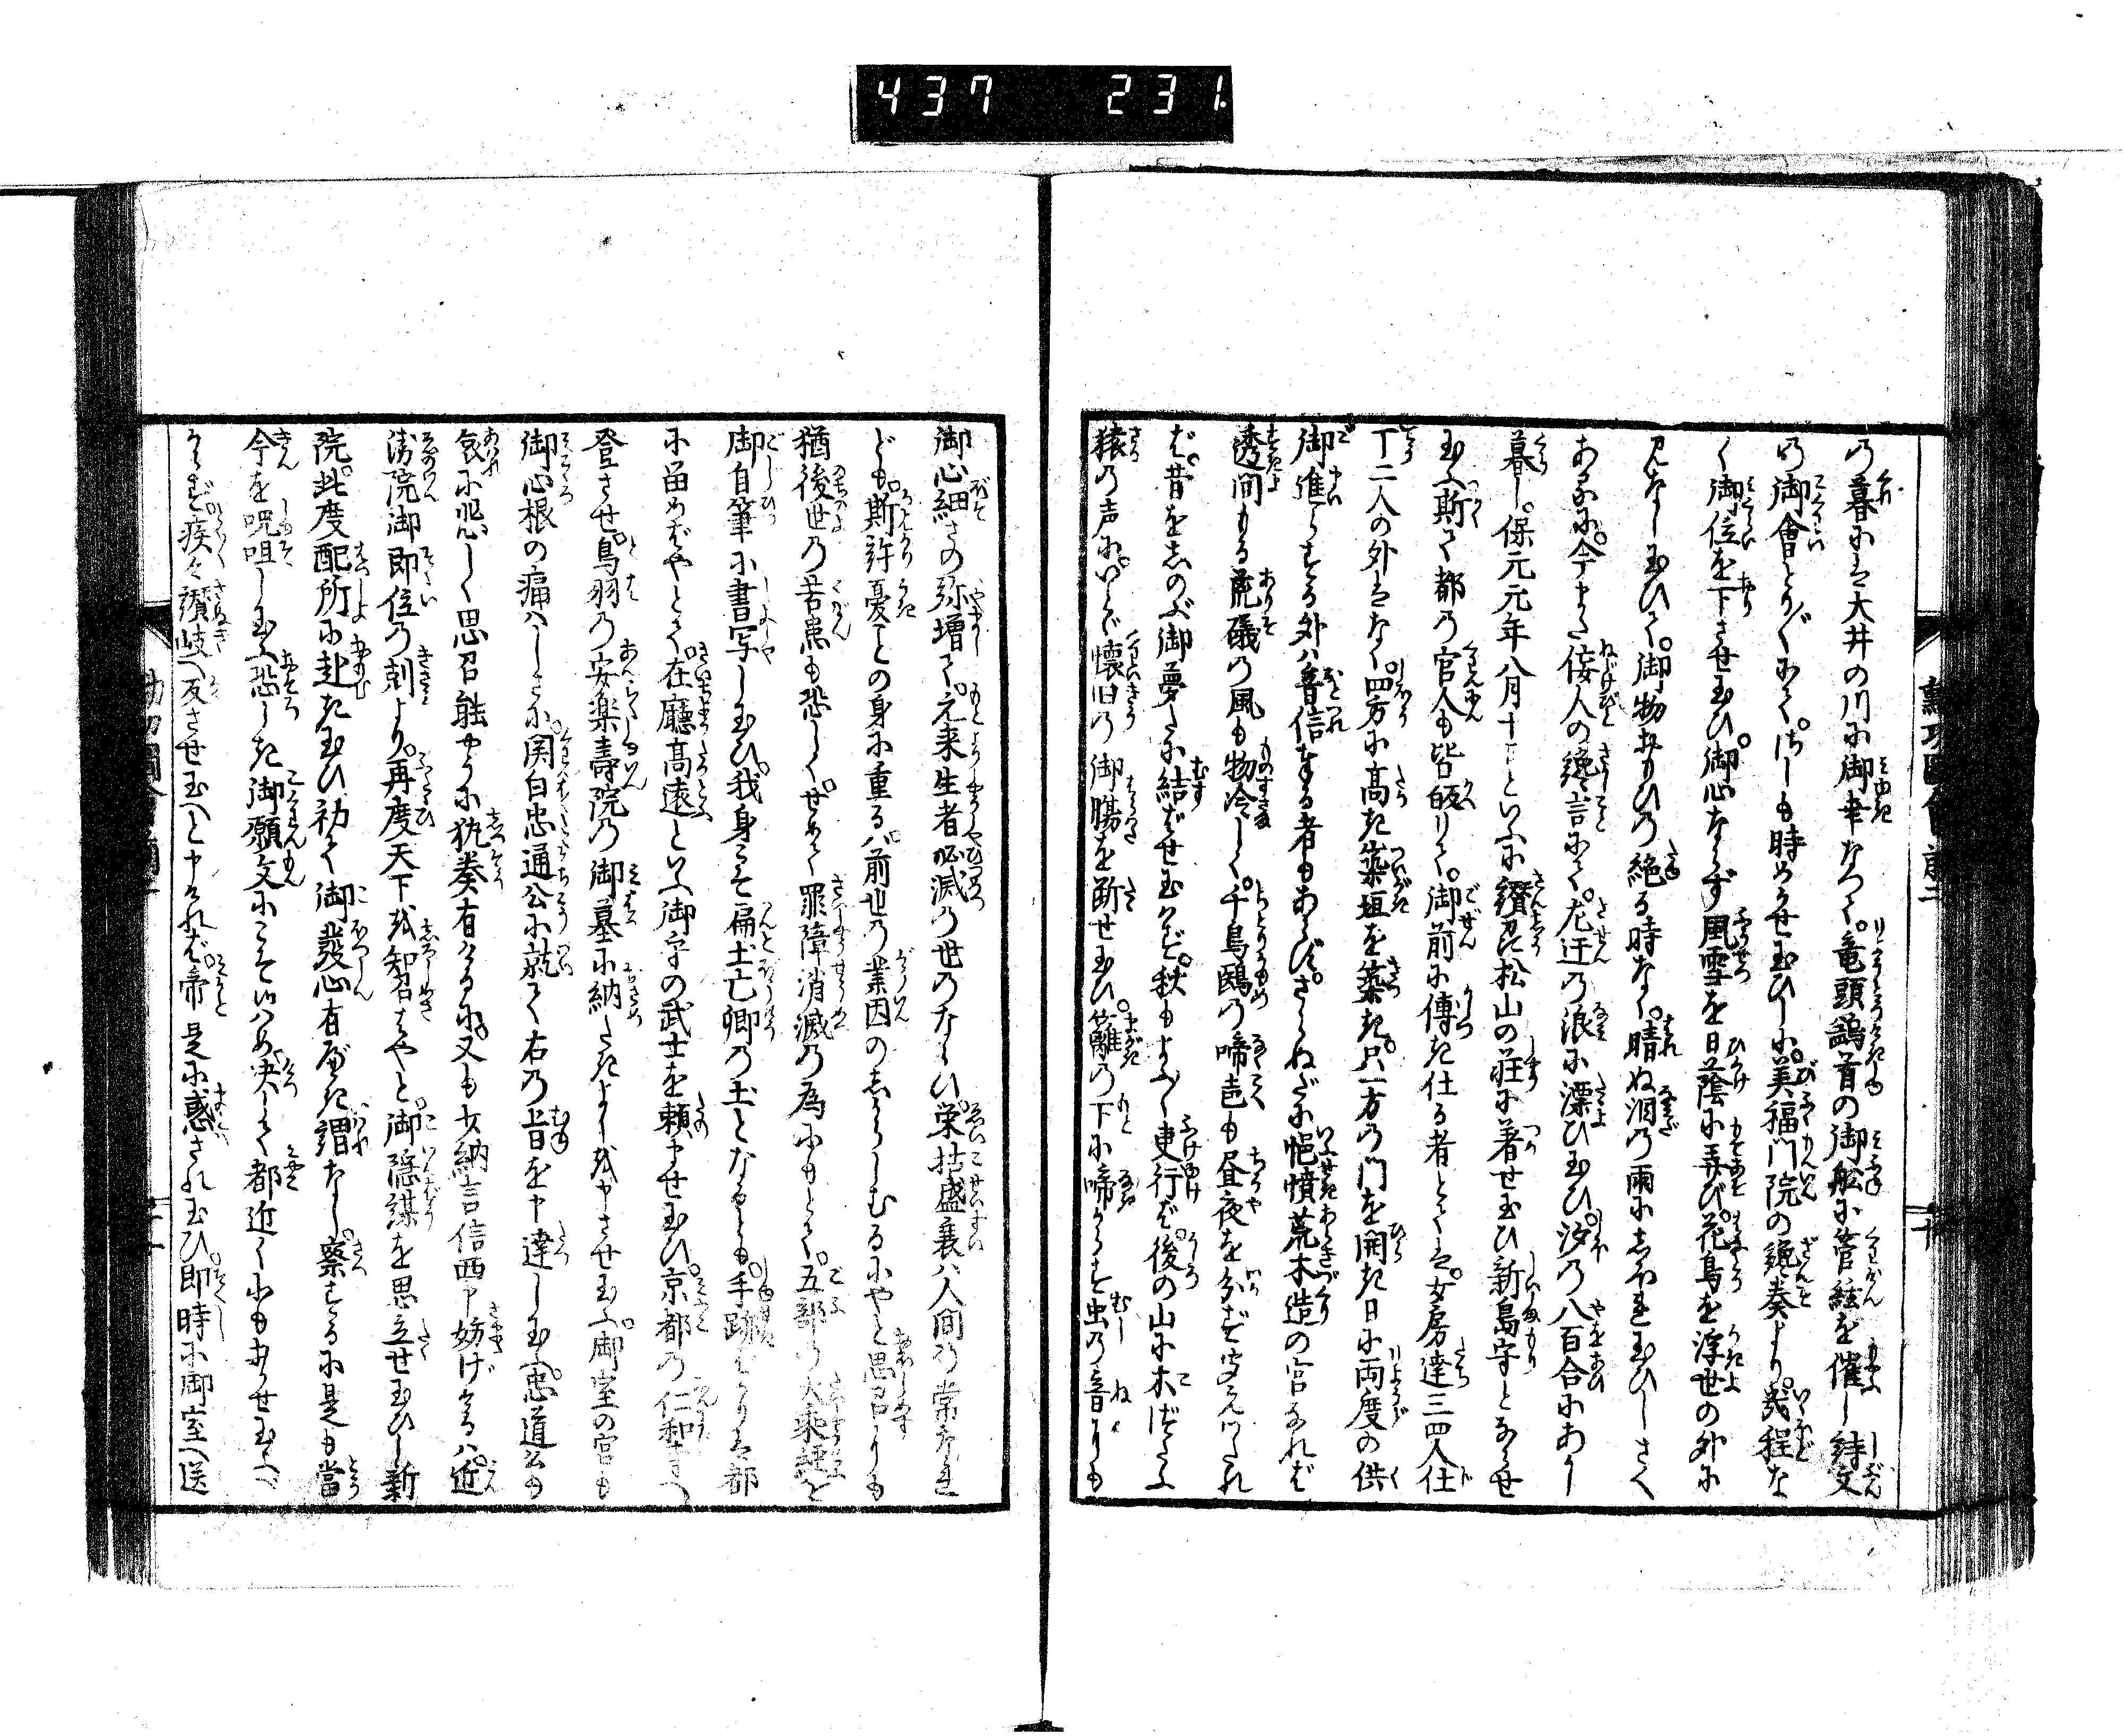 437 231
の暮には大井の川に御幸なつて。竜頭鷁首の御舩に管絃を催し詩文
の御會とり〴〵にて。さしも時めかせ玉ひしに。美福門院の讒奏より。幾程な
く御位を下させ玉ひ。御心ならず風雪を日蔭に弄び。花鳥を浮世の外に
見なし玉ひて。御物おもひの絶る時なく。晴ぬ泪の雨にしほれ玉ひしさへ
あるに。今また佞人の讒言にて。左迁の浪に漂ひ玉ひ。汐の八百合にあかし
暮し。保元元年八月十日といふに讃州松山の荘に着せ玉ひ新島守とならせ
玉ふ斯て都の官人も皆皈りて。御前に傅き仕る者とては。女房達三四人仕
丁二人の外はなく。四方に高き築垣を築き。只一方の門を開き日に両度の供
御進らする外は音信する者もあらず。さらねだに悒憤荒木造の宮なれば
透間もる荒礒の風も物冷しく。千鳥鷗の啼声も昼夜を分ず聞えわたれ
ば。昔をしのぶ御夢だに結ばせ玉はず。秋もよふ〳〵更行ば。後の山に木づたふ
猿の声に。いとゞ懐旧の御膓を断せ玉ひ。籬の下に啼からす虫の音よりも
御心細さの弥増て。元来生者必滅の世のならひ。栄枯盛衰ハ人間の常なれ
ども。斯許憂ことの身に重るハ。前世の業因のしからしむるにやと思召よりも
猶後世の苦患も恐しく。せめて罪障消滅の為にもとて。五部の大乗経を
御自筆に書写し玉ひ。我身こそ扁土亡卿の土となるとも。手跡ばかりは都
に留めばやとて。在廳高遠といふ御守の武士を頼ませ玉ひ。京都の仁和寺へ
登させ。鳥羽の安楽壽院の御墓に納たきよしを申させ玉ふ。御室の宮も
御心根の痛ハしさに。関白忠通公に就て右の旨を申達し玉ふ。忠通公も
哀に悲しく思召能やうに執奏有けるに。又も少納言信西申妨げけるハ。近
衛院御即位の刻より。再度天下を知召さばやと。御隠謀を思立せ玉ひし新
院。此度配所に赴き玉ひ初て御發心有べき謂なし。察するに是も當
今を呪咀し玉ふ恐しき御願文にこそ候ハめ。决して都近くにもおかせ玉ふべ
からず。疾々讃岐へ反させ玉へと申けれバ。帝是に惑され玉ひ。即時に御室へ送